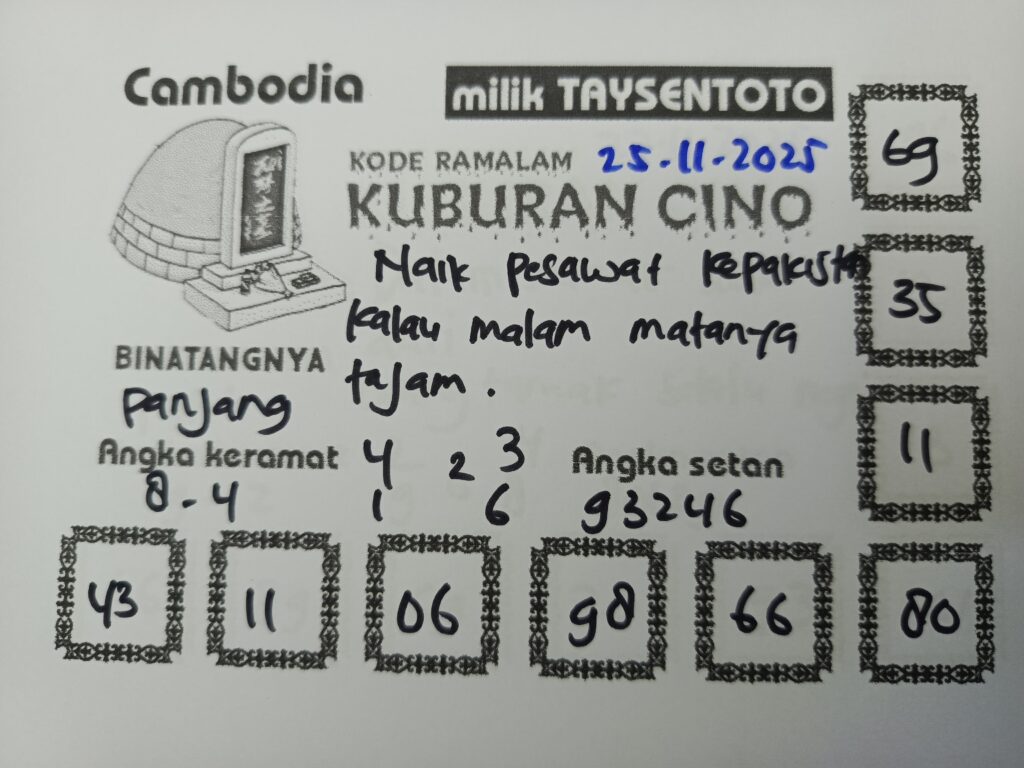 Cambodia
milik TAYSENTOTO
KODE RAMALAM 25.11.2025
KUBURAN CINO
Naik pesawat kepakistan
kalau malam matanya
tajam.
BINATANGNYA
panjang
Angka keramat
8-4
4 2 3
1 6
Angka setan
93246
69
35
11
43 11 06 98 66 80